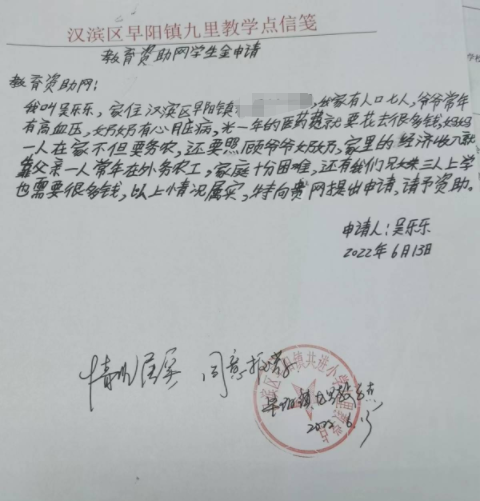 汉滨区早阳镇九里教学点信笺
教育资助网学生金申请
教育资助网:
我叫吴乐乐,家住汉滨区早阳镇 我家有人口七人,爷爷常年
有高血压,奶奶有心脏病,光一年的医药费就要花去很多钱,妈妈
一人在家不但要务农,还要照顾爷爷奶奶,家里的经济收入就
靠父亲一人常年在外务工,家庭十分困难,还有我们兄妹三人上学
也需要很多钱,以上情况属实,特向贵网提出申请,请予资助。
申请人:吴乐乐
2022年6月13日
情况属实 同意报送
早阳镇九里教学点
2022.6.13